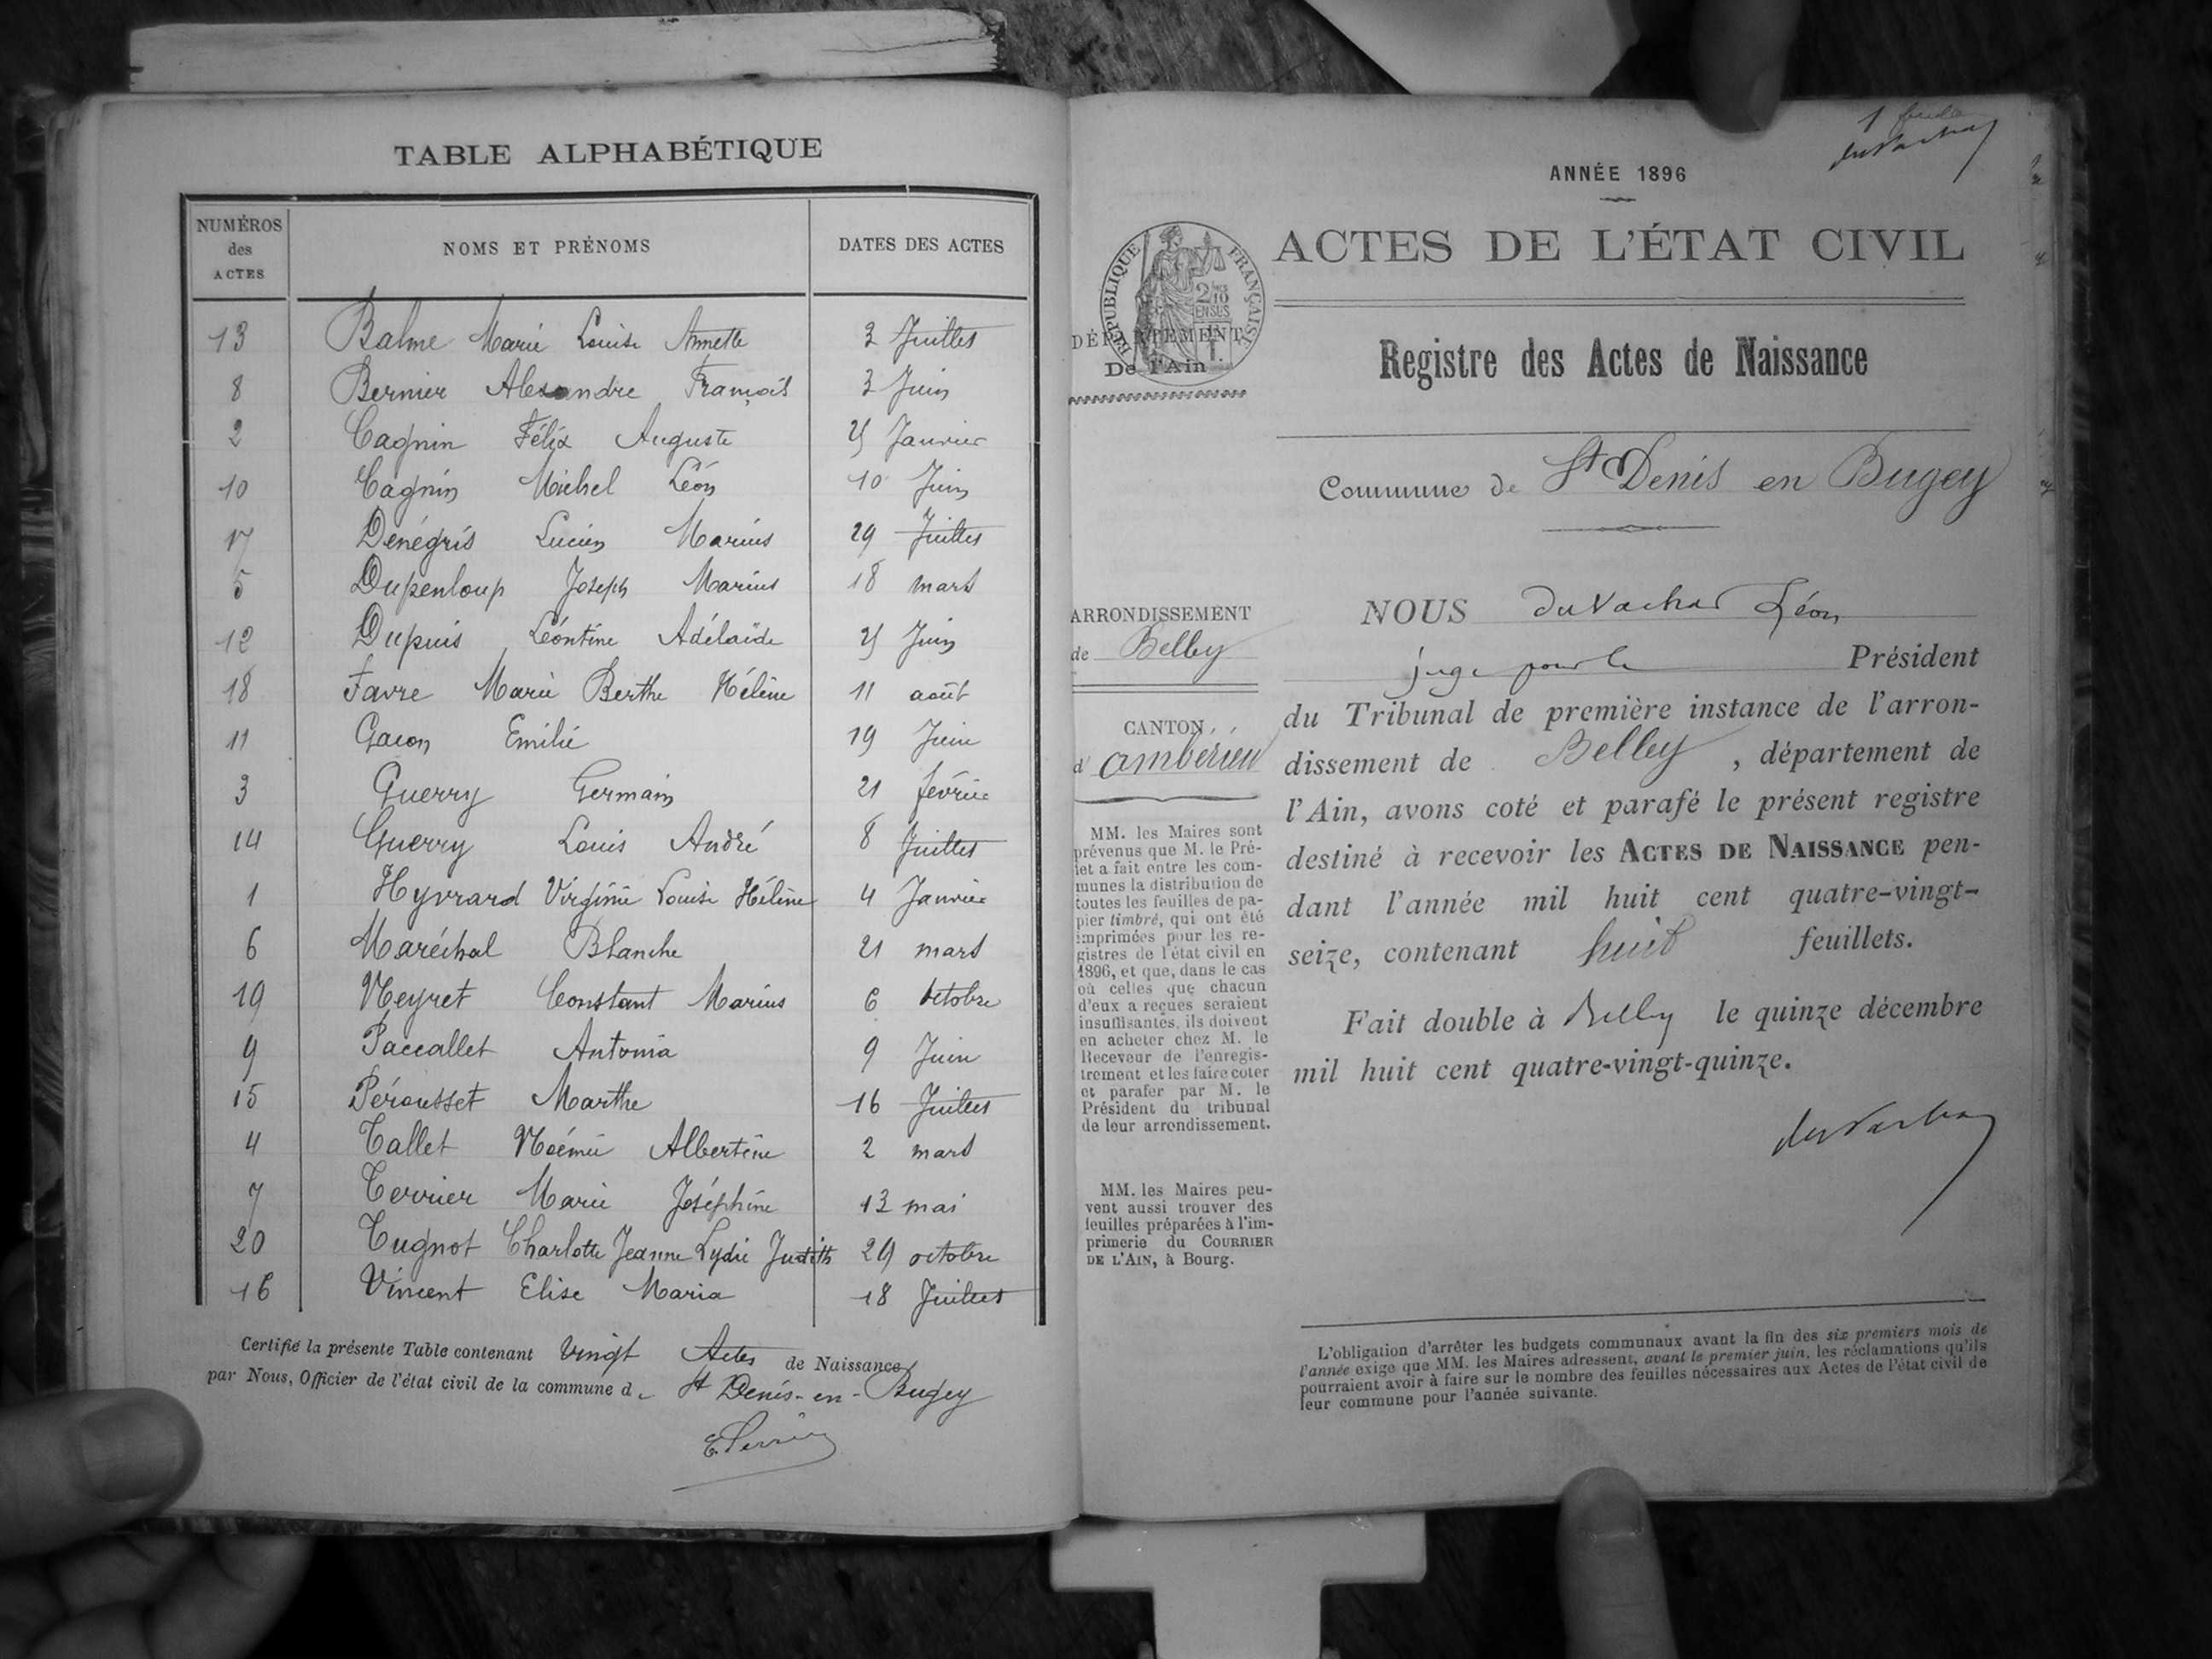 TABLE ALPHABÉTIQUE
NUMÉROS des ACTES NOMS ET PRÉNOMS DATES DES ACTES
13 Balme Marie Louise Annette 3 Juillet
8 Bernier Alexandre François 3 Juin
2 Cagnin Félix Auguste 25 Janvier
10 Cagnin Michel Léon 10 Juin
17 Denégris Lucien Marius 29 Juillet
5 Dupenloup Joseph Marius 18 mars
12 Dupuis Léontine Adélaïde 25 Juin
18 Favre Marie Berthe Hélène 11 août
11 Gacon Emilie 19 Juin
3 Guerry Germain 21 février
14 Guerry Louis André 8 Juillet
1 Hyvrard Virginie Louise Hélène 4 Janvier
6 Maréchal Blanche 21 mars
19 Neyret Constant Marius 6 octobre
9 Paccallet Antonia 9 Juin
15 Pérousset Marthe 16 Juillet
4 Tallet Noémie Albertine 2 mars
7 Terrier Marie Joséphine 13 mai
20 Tugnot Charlotte Jeanne Lydie Judith 29 octobre
16 Vincent Elise Maria 18 Juillet
Certifié la présente Table contenant Vingt Actes de Naissance
par Nous, Officier de l'état civil de la commune de St Denis-en-Bugey
1
ANNÉE 1896
ACTES DE L'ÉTAT CIVIL
RÉPUBLIQUE FRANÇAISE
2/10 EN SUS
DÉPARTEMENT
De l'Ain
Registre des Actes de Naissance
Commune de St Denis en Bugey
ARRONDISSEMENT
de Belley
CANTON
d'ambérieu
MM. les Maires sont
prévenus que M. le Pré-
fet a fait entre les com-
munes la distribution de
toutes les feuilles de pa-
pier timbré, qui ont été
imprimées pour les re-
gistres de l'état civil en
1896, et que, dans le cas
où celles que chacun
d'eux a reçues seraient
insuffisantes, ils doivent
en acheter chez M. le
Receveur de l'enregis-
trement et les faire coter
et parafer par M. le
Président du tribunal
de leur arrondissement.
MM. les Maires peu-
vent aussi trouver des
feuilles préparées à l'im-
primerie du COURRIER
DE L'AIN, à Bourg.
NOUS Duvachat Léon
juge pour le Président
du Tribunal de première instance de l'arron-
dissement de Belley, département de
l'Ain, avons coté et parafé le présent registre
destiné à recevoir les ACTES DE NAISSANCE pen-
dant l'année mil huit cent quatre-vingt-
seize, contenant huit feuillets.
Fait double à Belley le quinze décembre
mil huit cent quatre-vingt-quinze.
L'obligation d'arrêter les budgets communaux avant la fin des six premiers mois de
l'année exige que MM. les Maires adressent, avant le premier juin, les réclamations qu'ils
pourraient avoir à faire sur le nombre des feuilles nécessaires aux Actes de l'état civil de
leur commune pour l'année suivante.